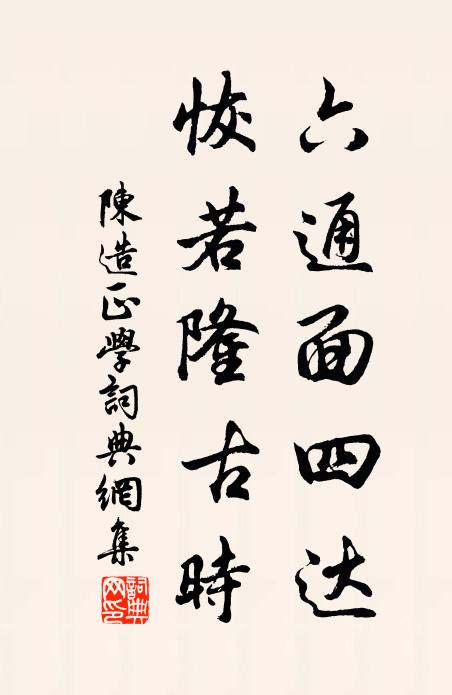 六通面四达
恢若隆古時
陳造正學詞典網集
詞典網印